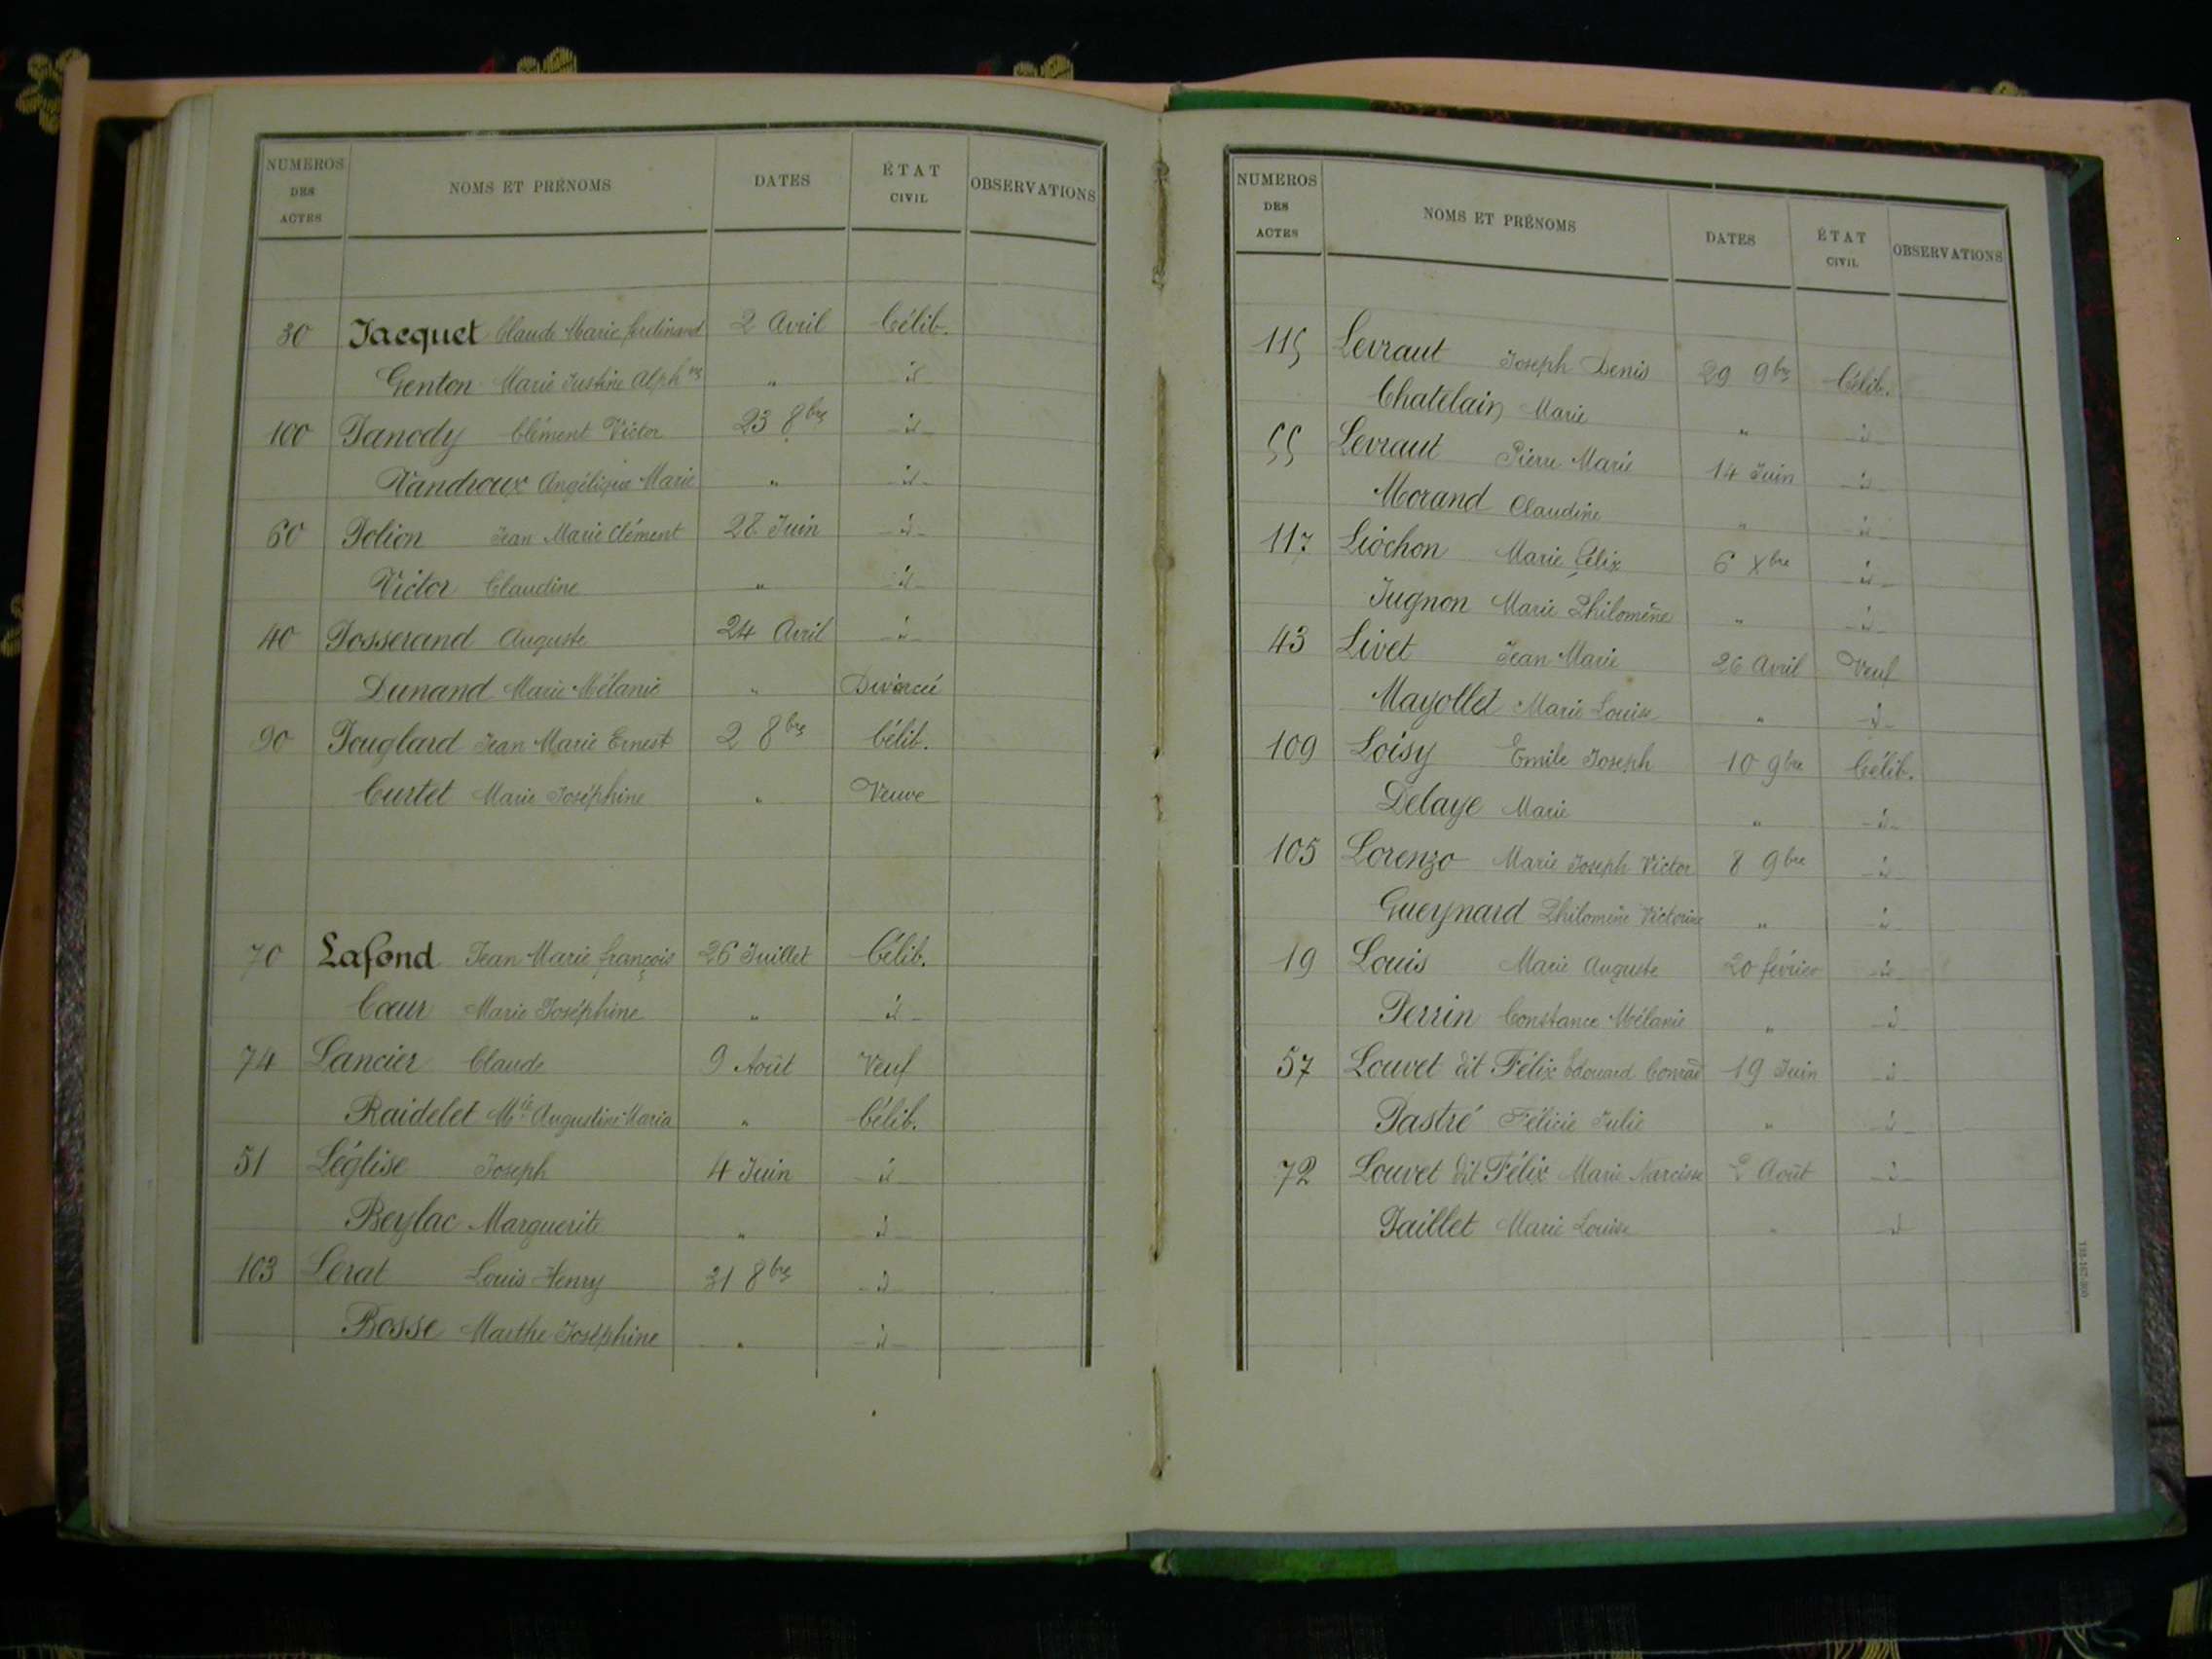 NUMEROS DES ACTES NOMS ET PRÉNOMS DATES ÉTAT CIVIL OBSERVATIONS
30 Jacquet Claude Marie ferdinand 2 Avril Célib.
Genton Marie Justine Alph " id
100 Janody Clément Victor 23 8bre -id-
Vandroux Angélique Marie " -id-
60 Jolion Jean Marie Clément 28 Juin -id-
Victor Claudine " -id-
40 Josserand Auguste 24 Avril -id-
Dunand Marie Mélanie " Divorcée
90 Jouglard Jean Marie Ernest 2 8bre Célib.
Curtet Marie Joséphine " Veuve
70 Lafond Jean Marie françois 26 Juillet Célib.
Cœur Marie Joséphine " -id-
74 Lancier Claude 9 Août Veuf
Raidelet Mie Augustine Maria " Célib.
51 Léglise Joseph 4 Juin -id-
Beylac Marguerite " -id-
103 Lerat Louis Henry 31 8bre -id-
Bosse Marthe Joséphine " -id-
NUMEROS DES ACTES NOMS ET PRÉNOMS DATES ÉTAT CIVIL OBSERVATIONS
115 Levraut Joseph Denis 29 9bre Célib.
Chatelain Marie " -id-
55 Levraut Pierre Marie 14 Juin -id-
Morand Claudine " -id-
117 Liochon Marie félix 6 Xbre -id-
Jugnon Marie Philomène " -id-
43 Livet Jean Marie 26 Avril Veuf
Mayollet Marie Louise " -id-
109 Loisy Emile Joseph 10 9bre Célib.
Delaye Marie " -id-
105 Lorenzo Marie Joseph Victor 8 9bre -id-
Gueynard Philomène Victorine " -id-
19 Louis Marie Auguste 20 février -id-
Perrin Constance Mélanie " -id-
57 Louvet dit Félix Edouard Conrad 19 Juin -id-
Pastré Félicie Julie " -id-
72 Louvet dit Félix Marie Narcisse Août -id-
Jaillet Marie Louise " id